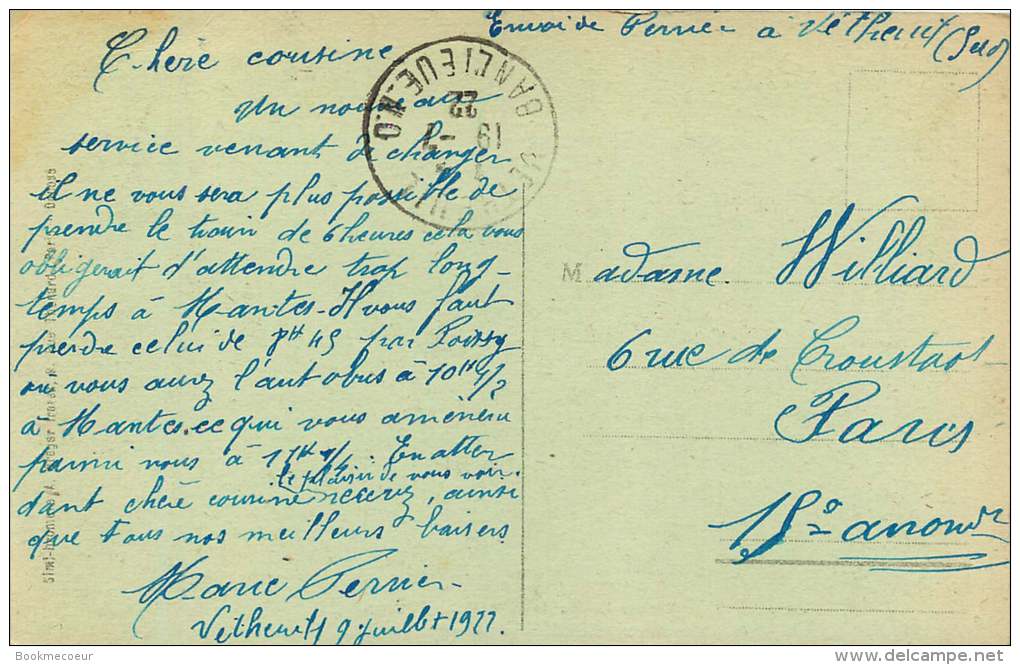 Envoi de Perrier à Vétheuil (S et O)
Chère cousine
Un nouveau
service venant de changer
il ne vous sera plus possible de
prendre le train de 6 heures cela vous
obligerait d'attendre trop long-
temps à Mantes. Il vous faut
prendre celui de 8H 45 par Poissy
ou vous aurez l'autobus à 10H 1/2
à Mantes. ce qui vous amènera
parmi nous à 11H 1/4. En atten
le plaisir de vous voir.
dant chère cousine recevez, ainsi
que tous nos meilleurs baisers
Marie Perrier
Vétheuil 9 juillet 1922.
BANLIEUE N.O
19 - 7
22
Madame Williard
6 rue de
Paris
15e arrondr
Bookmecoeur
delcampe.net